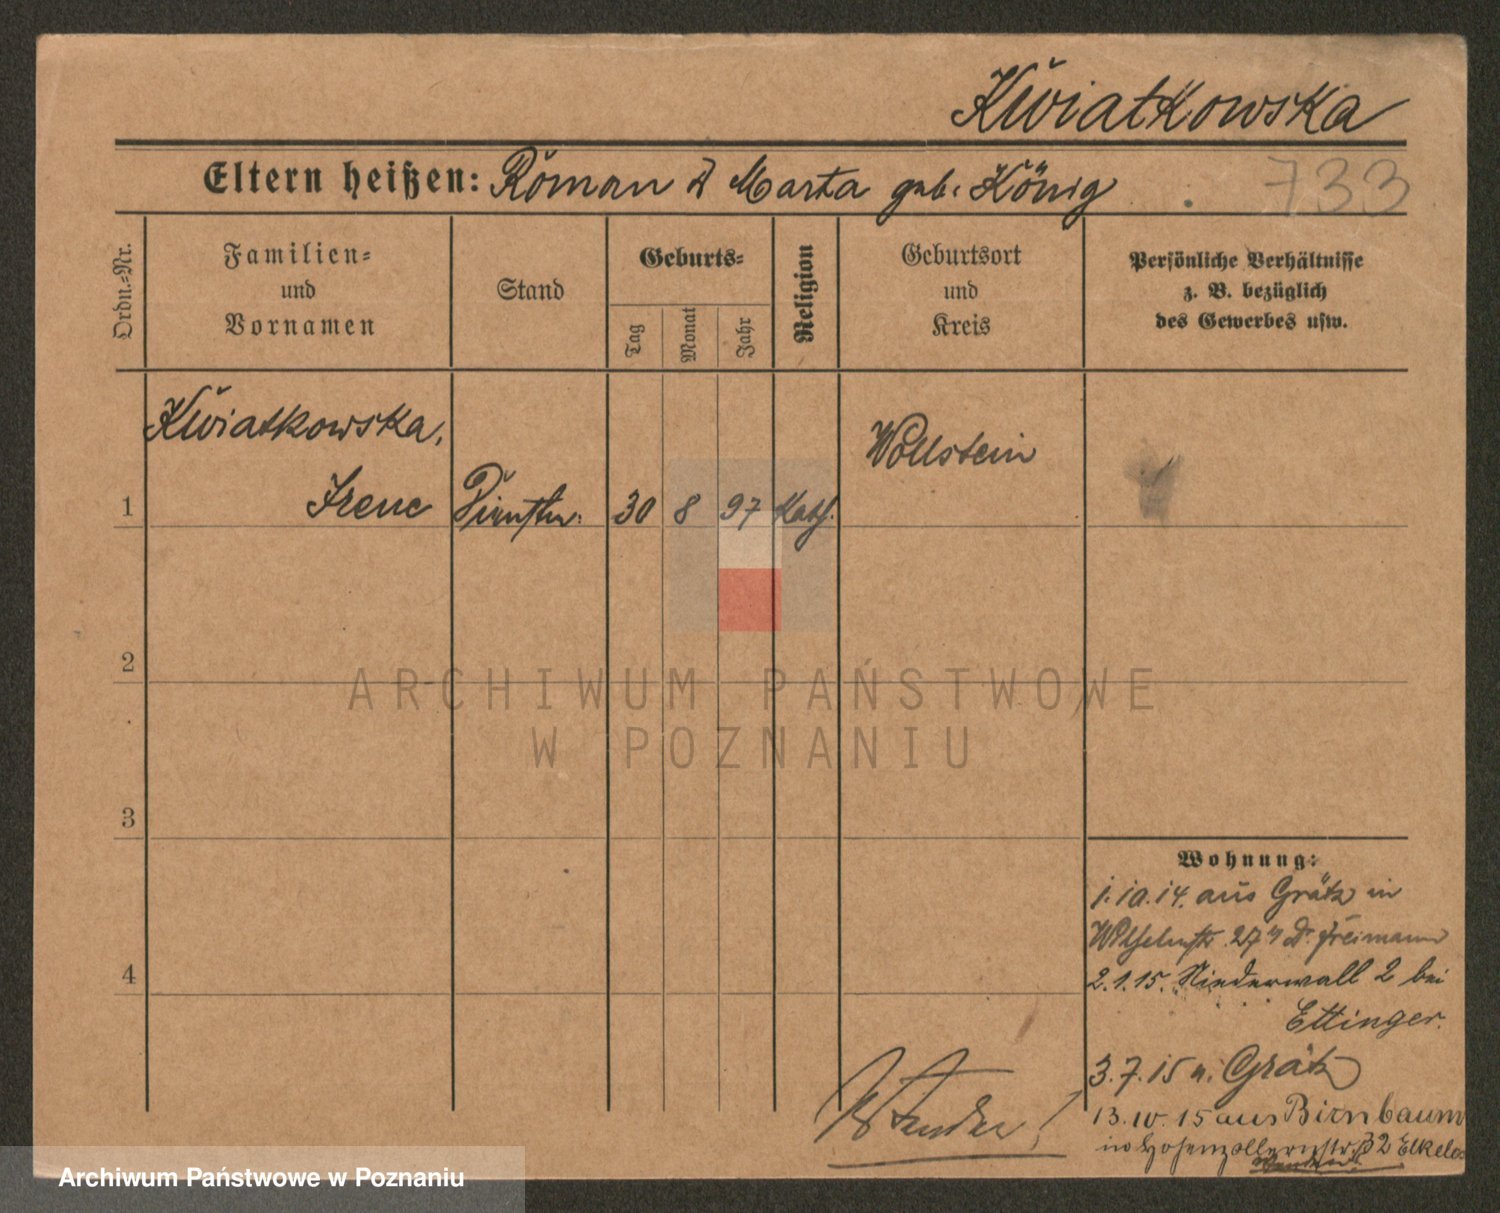 Kwiatkowska
Eltern heißen: Roman & Marta geb. König
733
Ordn.-Nr.
Familien-
und
Vornamen
Stand
Geburts-
Tag
Monat
Jahr
Religion
Geburtsort
und
Kreis
Persönliche Verhältnisse
z. B. bezüglich
des Gewerbes usw.
Kwiatkowska,
Wollstein
1 Irene Dienstm. 30 8 97 kath.
2
ARCHIWUM PAŃSTWOWE
W POZNANIU
3
Wohnung:
1.10.14. aus Grätz in
27 Dr. Freimann
4
2.1.15. Niederwall 2 bei
Ettinger.
3.7.15 n. Grätz
Wenden!
13.10.15 aus Birnbaum
in Hohenzollernstr. 32 Elkeles
Wenden!
Archiwum Państwowe w Poznaniu